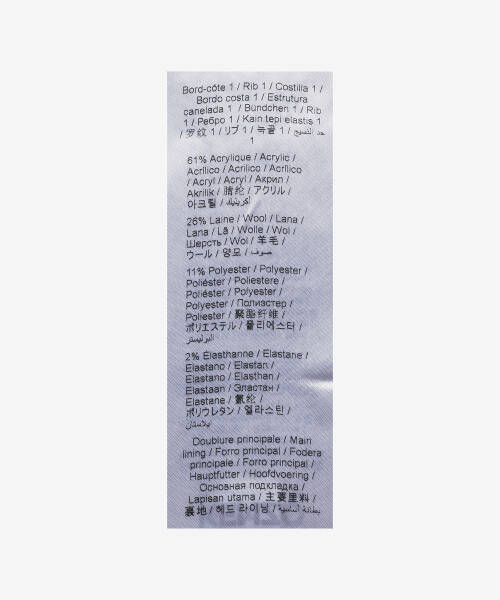 Bord-côte 1 / Rib 1 / Costilla 1 /
Bordo costa 1 / Estrutura
canelada 1 / Bündchen 1 / Rib
1 / Ребро 1 / Kain tepi elastis 1
/ 罗纹 1 / リブ 1 / 늑골 1 / حد النسيج
1
61% Acrylique / Acrylic /
Acrílico / Acrilico / Acrílico
/ Acryl / Acryl / Акрил /
Akrilik / 腈纶 / アクリル /
아크릴 / أكريليك
26% Laine / Wool / Lana /
Lana / Lã / Wolle / Wol /
Шерсть / Wol / 羊毛 /
ウール / 양모 / صوف
11% Polyester / Polyester /
Poliéster / Poliestere /
Poliéster / Polyester /
Polyester / Полиэстер /
Poliester / 聚酯纤维 /
ポリエステル / 폴리에스터 /
البوليستر
2% Élasthanne / Elastane /
Elastano / Elastan /
Elastano / Elasthan /
Elastaan / Эластан /
Elastane / 氨纶 /
ポリウレタン / 엘라스틴 /
إيلاستان
Doublure principale / Main
lining / Forro principal / Fodera
principale / Forro principal /
Hauptfutter / Hoofdvoering /
Основная подкладка /
Lapisan utama / 主要里料 /
裏地 / 헤드 라이닝 / بطانة أساسية /